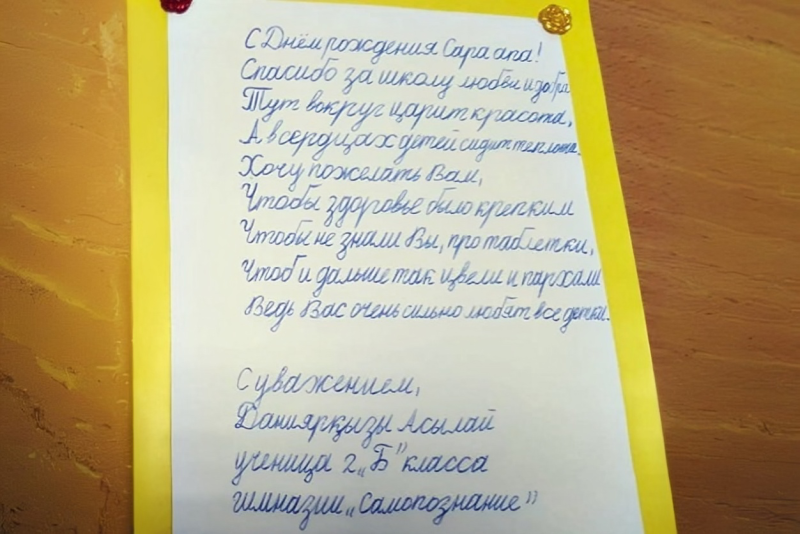 С Днём рождения Сара апа!
Спасибо за школу любви и добра
Тут вокруг царит красота,
А в сердцах детей сидит теплота.
Хочу пожелать Вам,
Чтобы здоровье было крепким
Чтобы не знали Вы, про таблетки,
Чтоб и дальше так цвели и пархали
Ведь Вас очень сильно любят все детки.
С уважением,
Даниярқызы Асылай
ученица 2 „Б" класса
гимназии „Самопознание"